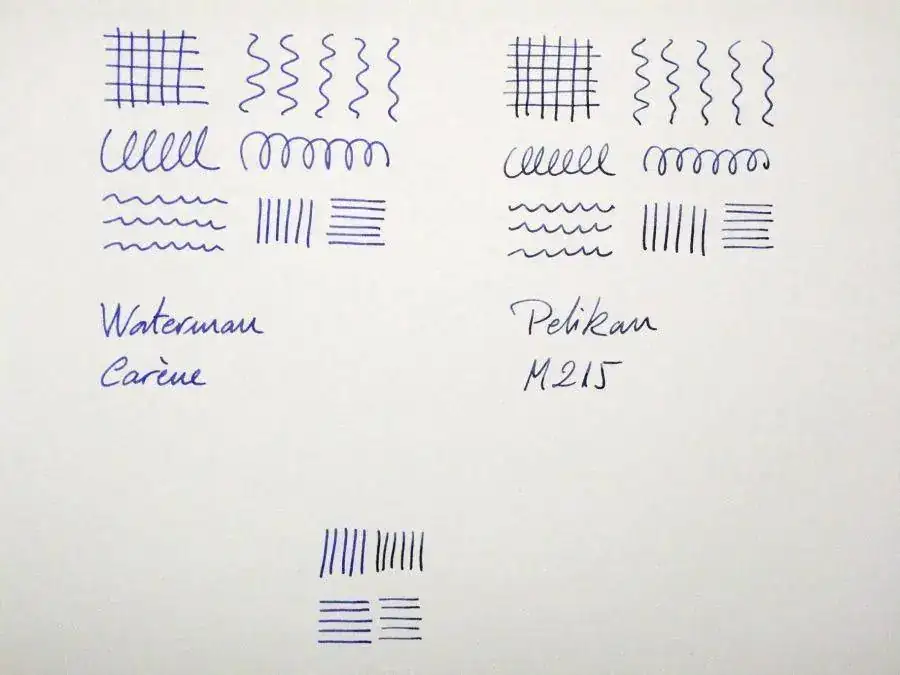 Waterman
Carène
Pelikan
M215